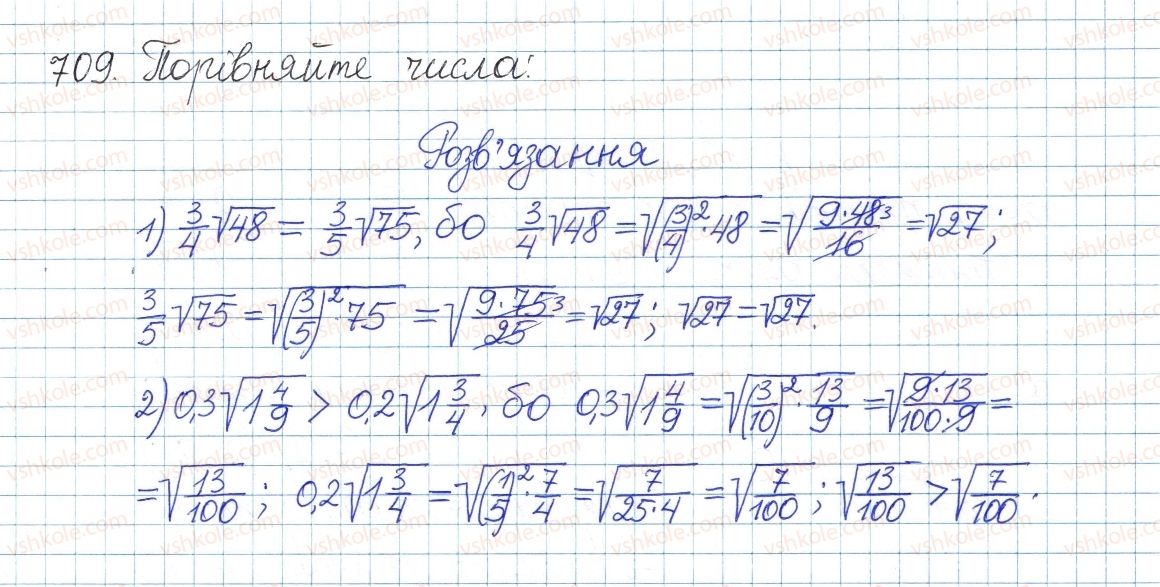 709. Порівняйте числа:
Розв'язання
1) 3/4 √48 = 3/5 √75, бо 3/4 √48 = √((3/4)² · 48) = √(9·48 3/16) = √27;
3/5 √75 = √((3/5)² · 75) = √(9·75 3/25) = √27; √27 = √27.
2) 0,3√(1 4/9) > 0,2√(1 3/4), бо 0,3√(1 4/9) = √((3/10)² · 13/9) = √(9·13/100·9) =
= √(13/100); 0,2√(1 3/4) = √((1/5)² · 7/4) = √(7/25·4) = √(7/100); √(13/100) > √(7/100).